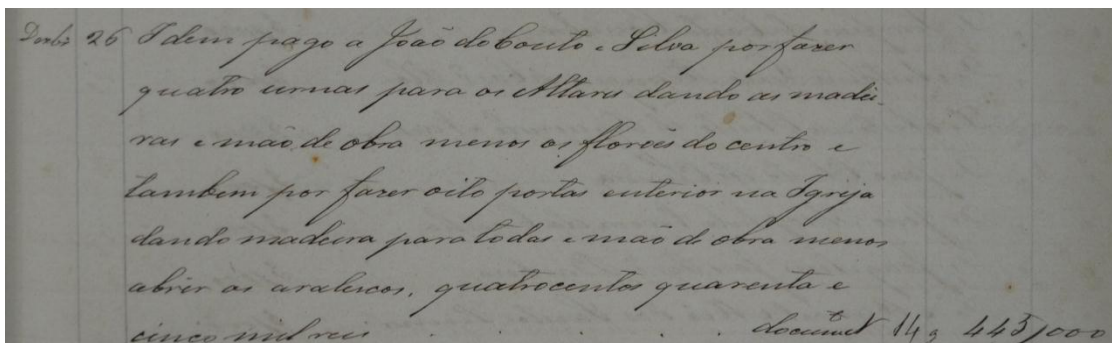 Dezbº 26 Idem pago a João do Couto e Silva por fazer
quatro urnas para os Altares dando as madei-
ras e mão de obra menos os florões do centro e
tambem por fazer oito portas enterior na Igrija
dando madeira para todas e mão de obra menos
abrir os arabescos, quatrocentos quarenta e
cinco mil reis . . . . . documtº Nº 445/000